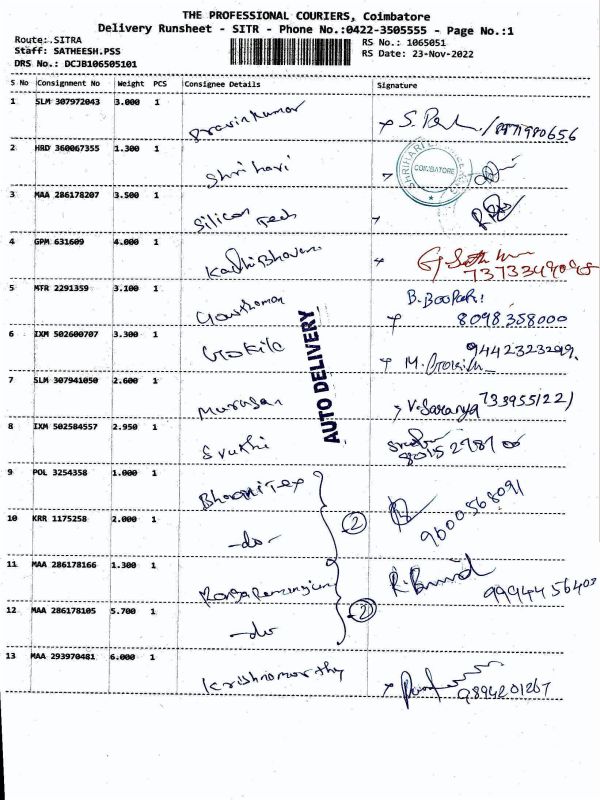 THE PROFESSIONAL COURIERS, Coimbatore
Delivery Runsheet - SITR - Phone No.:0422-3505555 - Page No.:1
Route:.SITRA
RS No.: 1065051
Staff: SATHEESH.PSS
RS Date: 23-Nov-2022
DRS No.: DCJB106505101
S No Consignment No Weight PCS Consignee Details Signature
1 SLM 307972043 3.000 1 Pravin kumar
2 HRD 360067355 1.300 1 Shri hari
COIMBATORE
3 MAA 286178207 3.500 1 Silicon Tech
4 GPM 631609 4.000 1
5 MTR 2291359 3.100 1 B. BooPathi
8098 358000
6 IXM 502600707 3.300 1 Gokila
M. Gokila
AUTO DELIVERY
7 SLM 307941050 2.600 1 Murugan V. Saranya
8 IXM 502584557 2.950 1
9 POL 3254358 1.000 1
2
9600568091
10 KRR 1175258 2.000 1 -do-
11 MAA 286178166 1.300 1
2
12 MAA 286178105 5.700 1 -do-
13 MAA 293970481 6.000 1 Krishnamoorthy
9894201267